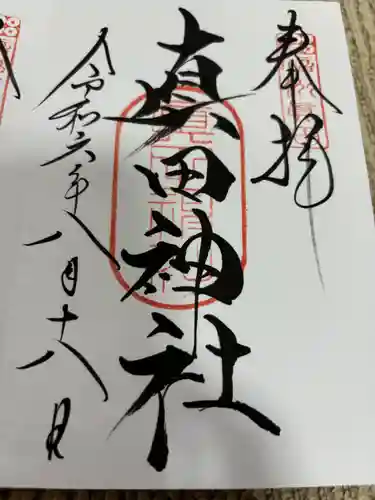 奉拝
真田神社
令和六年八月十八日